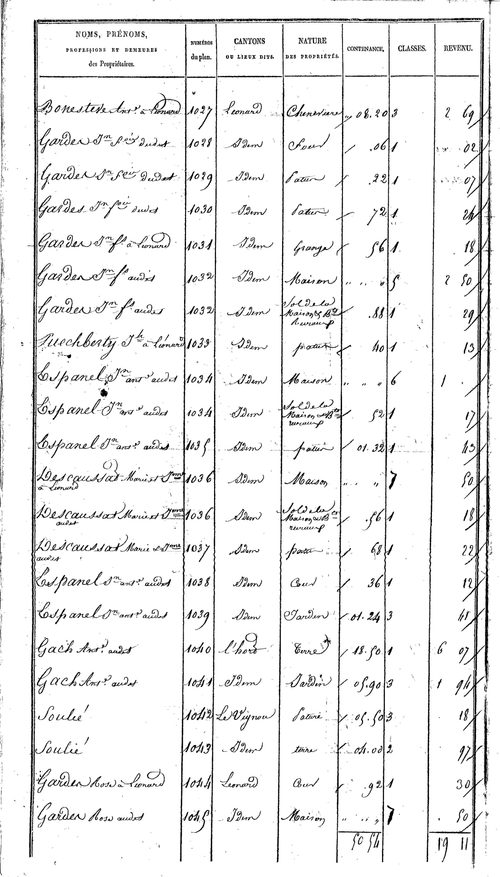 NOMS, PRÉNOMS, PROFESSIONS ET DEMEURES des Propriétaires. | NUMÉROS du plan. | CANTONS OU LIEUX DITS. | NATURE DES PROPRIÉTÉS. | CONTENANCE. | CLASSES. | REVENU.
Bonestève Ant.e à Léonard 1027 Léonard Chenevière 08.20 3 2 69
Gardes Jn dudit 1028 Idem Four .06 1 . 02
Gardes Jn dudit 1029 Idem Patur .22 1 07
Gardes Jn dudit 1030 Idem Patur 72 1 24
Gardes Jn fs à Léonard 1031 Idem Grange 56 1 18
Gardes Jn fs audit 1032 Idem Maison " " " 5 2 50
Gardes Jn fs audit 1032 Idem Sol de la Maison & Bt ruraux .88 1 29
Puechberty Jh à Léonard 1033 Idem patur 40 1 13
Espanel Jn ant.e audit 1034 Idem Maison " " " 6 1 .
Espanel Jn ant.e audit 1034 Idem Sol de la Maison et Bts ruraux 52 1 17
Espanel Jn ant.e audit 1035 Idem patur 01.32 1 43
Descaussat Marie et à Léonard 1036 Idem Maison " " 7 50
Descaussat Marie et audit 1036 Idem Sol de la Maison et Bt ruraux .56 1 18
Descaussat Marie et audit 1037 Idem patur 68 1 22
Espanel Jn ant.e audit 1038 Idem Cour 36 1 12
Espanel Jn ant.e audit 1039 Idem Jardin 01.24 3 41
Gach Ant.e audit 1040 l'hort Terre 18.50 1 6 07
Gach Ant.e audit 1041 Idem Jardin 05.90 3 1 94
Soulié 1042 Le Vignou Pature 05.50 3 18
Soulié 1043 Idem terre 04.00 2 97
Gardes Rose à Léonard 1044 Léonard Cour .92 1 30
Gardes Rose audit 1045 Idem Maison " " " 7 . 50
50 54 19 11